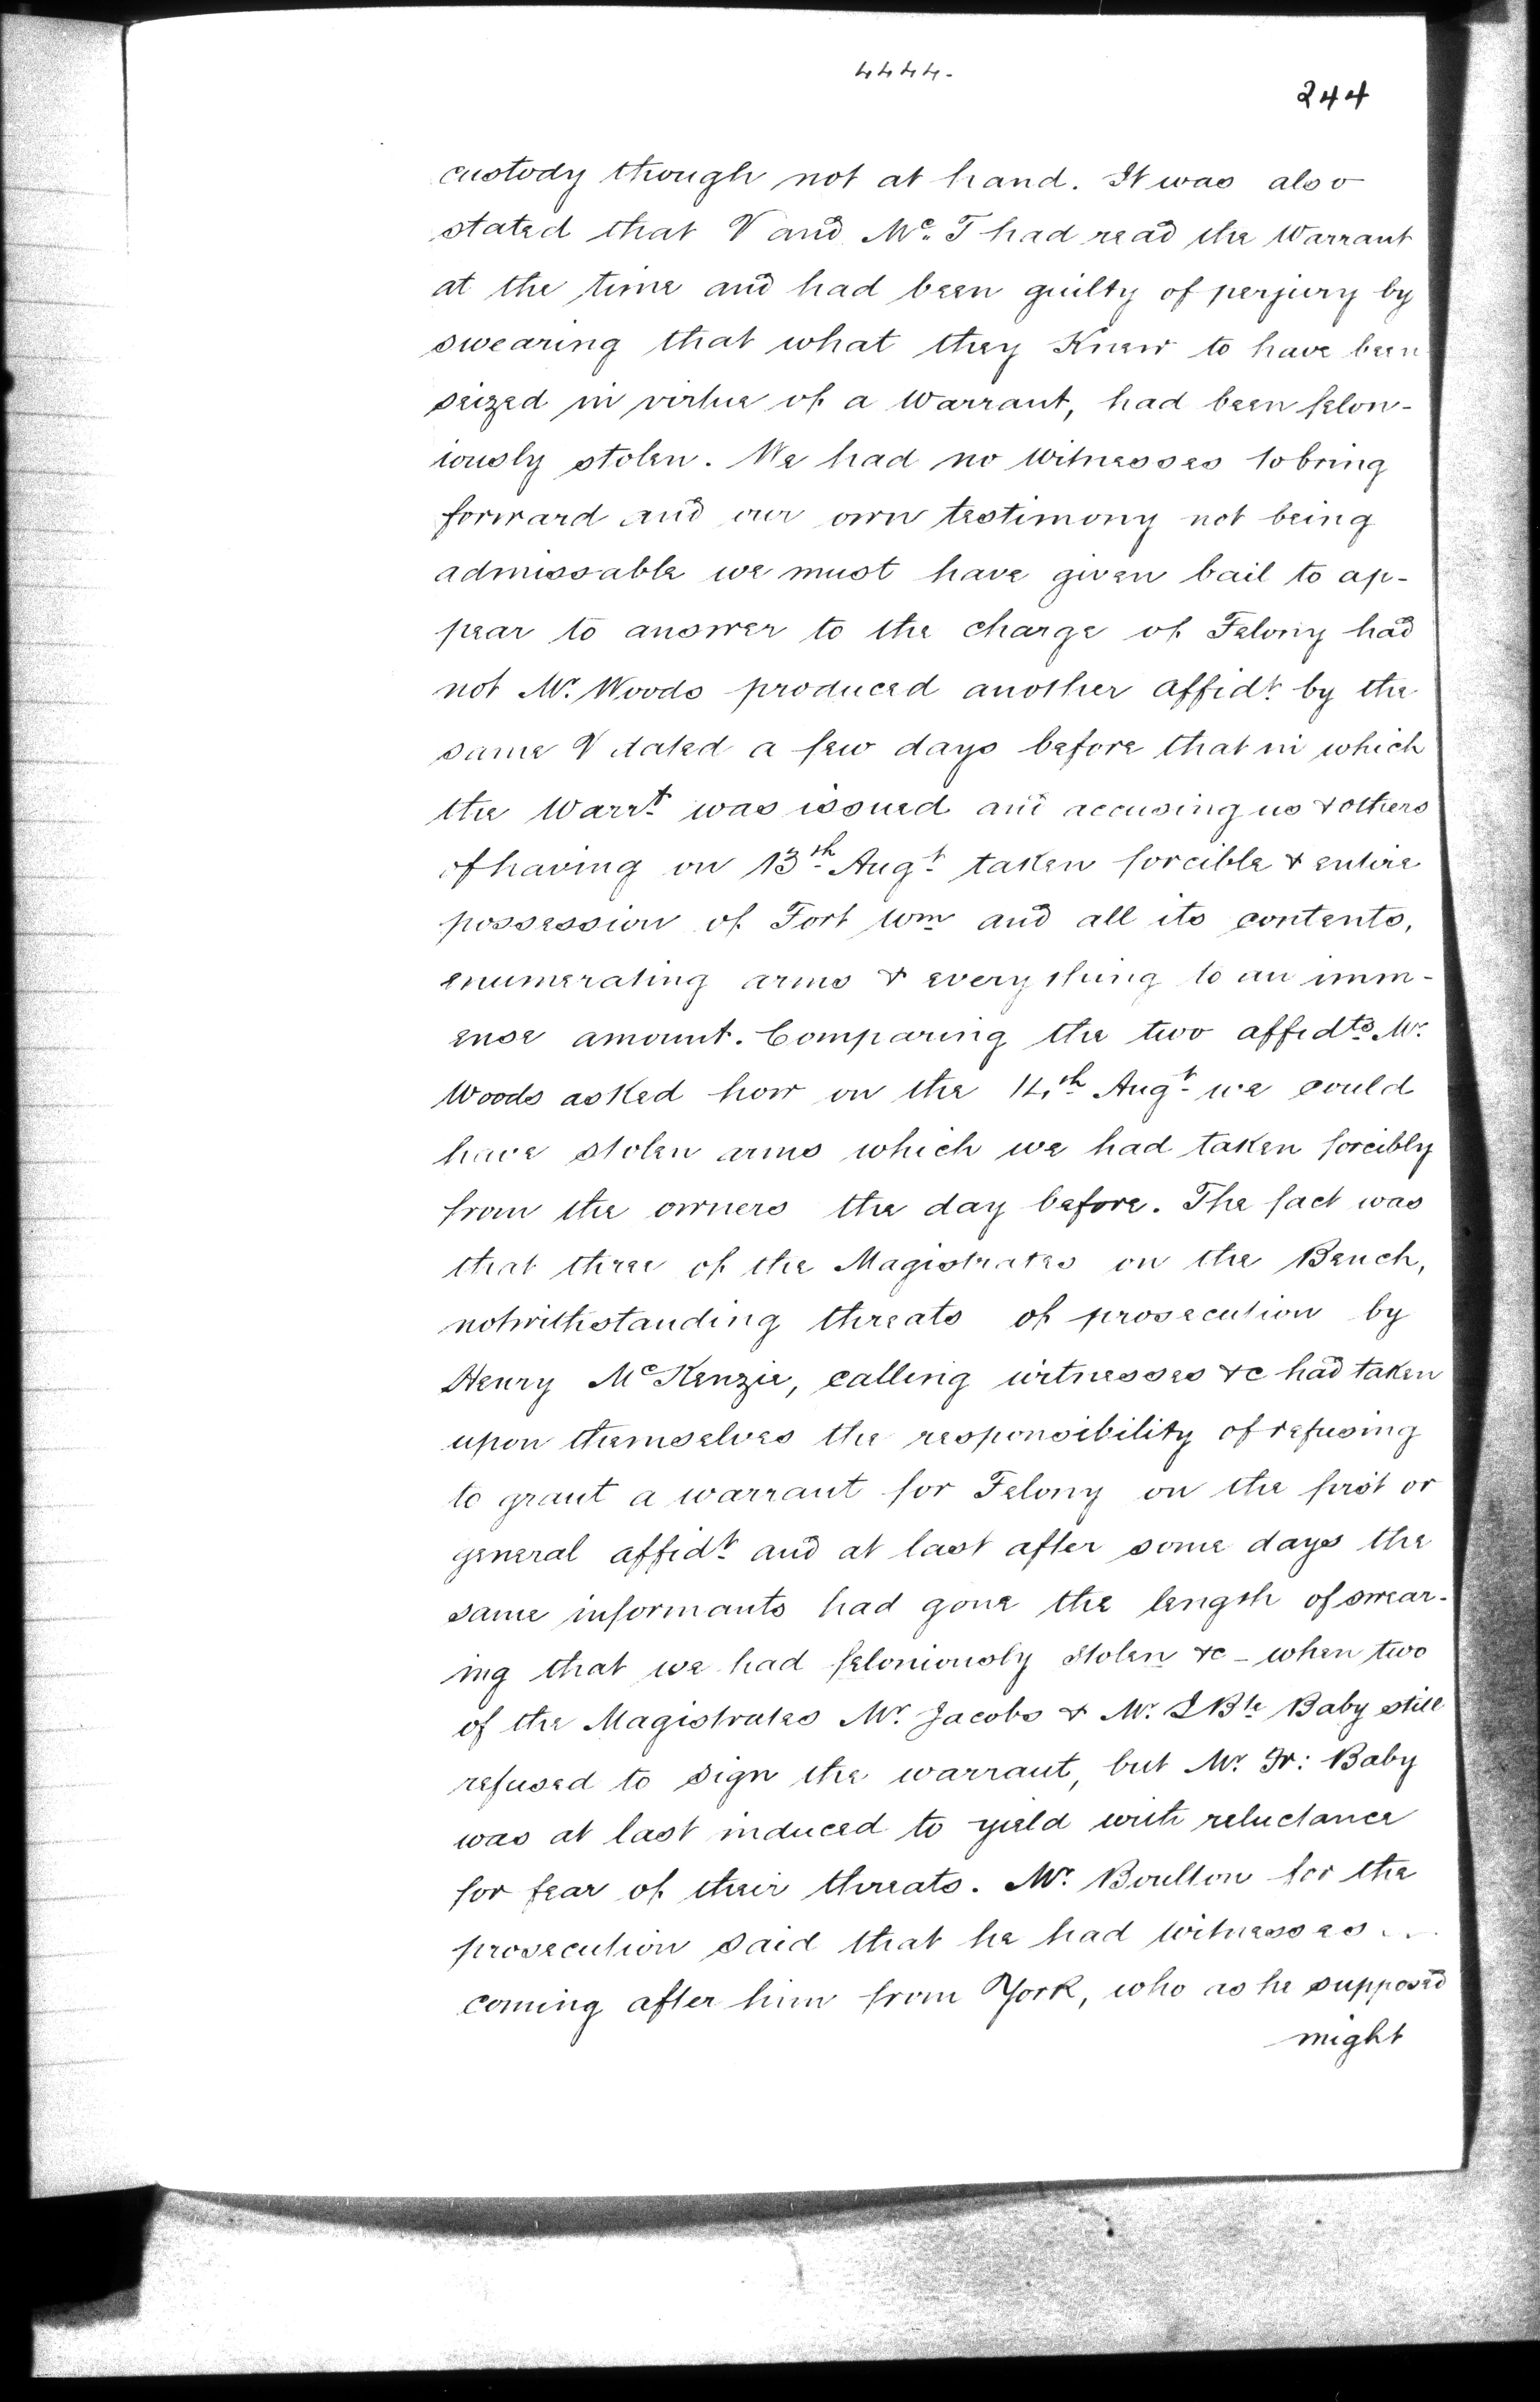 4444.
244
custody though not at hand. It was also
stated that V and Mc. T had read the Warrant
at the time and had been guilty of perjury by
swearing that what they Knew to have been
seized in virtue of a Warrant, had been felon-
iously stolen. We had no witnesses to bring
forward and our own testimony not being
admissable we must have given bail to ap-
pear to answer to the charge of Felony had
not Mr. Woods produced another affidt. by the
same V dated a few days before that in which
the Warrt. was issued and accusing us & others
of having on 13th Augt. taken forcible & entire
possession of Fort Wm and all its contents,
enumerating arms & every thing to an imm-
ense amount. Comparing the two affidts. Mr.
Woods asked how on the 14th Augt. we could
have stolen arms which we had taken forcibly
from the owners the day before. The fact was
that three of the Magistrates on the Bench,
notwithstanding threats of prosecution by
Henry McKenzie, calling witnesses &c had taken
upon themselves the responsibility of refusing
to grant a warrant for Felony on the first or
general affidt. and at last after some days the
same informants had gone the length of swear-
ing that we had feloniously stolen &c - when two
of the Magistrates Mr. Jacobs & Mr. J Bte Baby still
refused to sign the warrant, but Mr. Fr: Baby
was at last induced to yield with reluctance
for fear of their threats. Mr. Boulton for the
prosecution said that he had witnesses ...
coming after him from York, who as he supposed
might